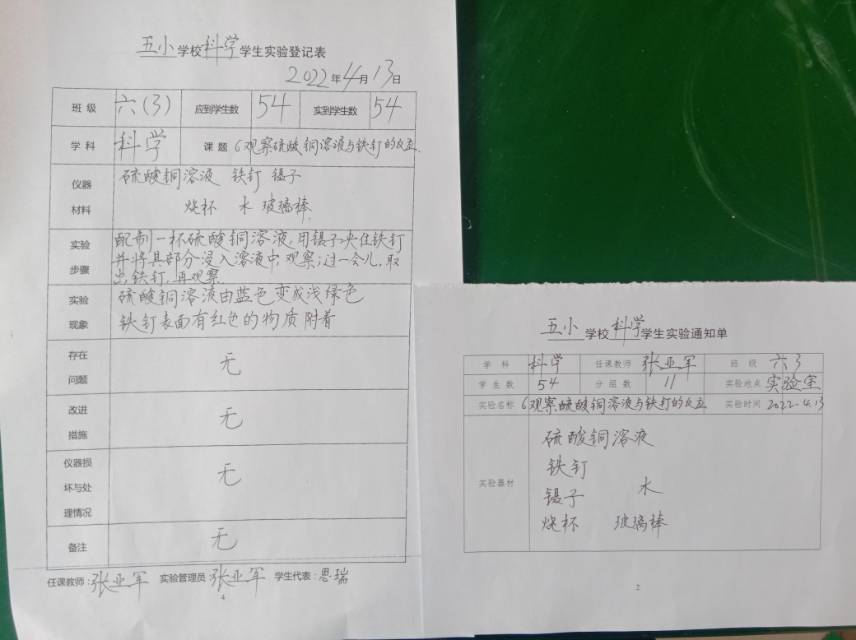 五小学校科学学生实验登记表
2022年4月13日
班级 六(3) 应到学生数 54 实到学生数 54
学科 科学 课题 6观察硫酸铜溶液与铁钉的反应
仪器材料 硫酸铜溶液 铁钉 镊子
烧杯 水 玻璃棒
实验步骤 配制一杯硫酸铜溶液,用镊子夹住铁钉
并将其部分浸入溶液中,观察;过一会儿,取
出铁钉,再观察
实验现象 硫酸铜溶液由蓝色变成浅绿色
铁钉表面有红色的物质附着
存在问题 无
改进措施 无
仪器损坏与处理情况 无
备注 无
任课教师:张亚军 实验管理员 张亚军 学生代表:恩瑞
4
五小学校科学学生实验通知单
学科 科学 任课教师 张亚军 班级 六3
学生数 54 分组数 11 实验地点 实验室
实验名称 6观察硫酸铜溶液与铁钉的反应 实验时间 2022.4.13
实验器材 硫酸铜溶液
铁钉
镊子 水
烧杯 玻璃棒
2